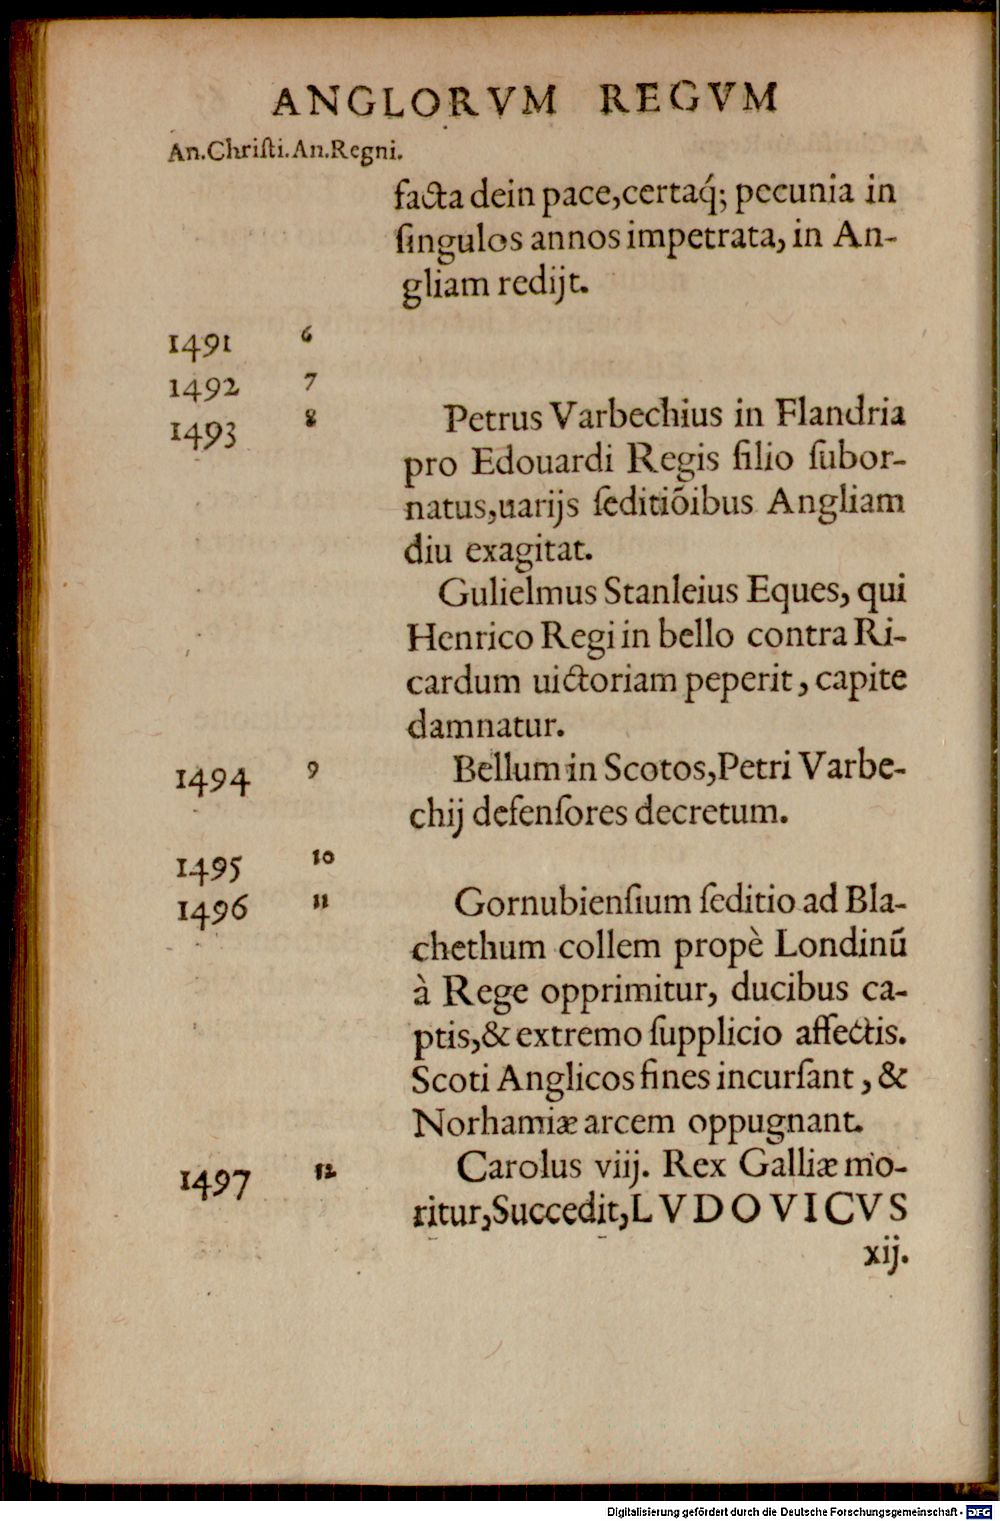 ANGLORVM REGVM
An.Chriſti.An.Regni.
facta dein pace,certaq́; pecunia in
ſingulos annos impetrata, in An-
gliam redijt.
1491 6
1492 7
1493 8 Petrus Varbechius in Flandria
pro Edouardi Regis filio ſubor-
natus,uarijs ſeditiōibus Angliam
diu exagitat.
Gulielmus Stanleius Eques, qui
Henrico Regi in bello contra Ri-
cardum uictoriam peperit, capite
damnatur.
1494 9 Bellum in Scotos,Petri Varbe-
chij defenſores decretum.
1495 10
1496 11 Gornubienſium ſeditio ad Bla-
chethum collem propè Londinū
à Rege opprimitur, ducibus ca-
ptis,& extremo ſupplicio affectis.
Scoti Anglicos fines incurſant, &
Norhamiæ arcem oppugnant.
1497 12 Carolus viij. Rex Galliæ mo-
ritur,Succedit,LVDOVICVS
xij.
Digitalisierung gefördert durch die Deutsche Forschungsgemeinschaft - DFG